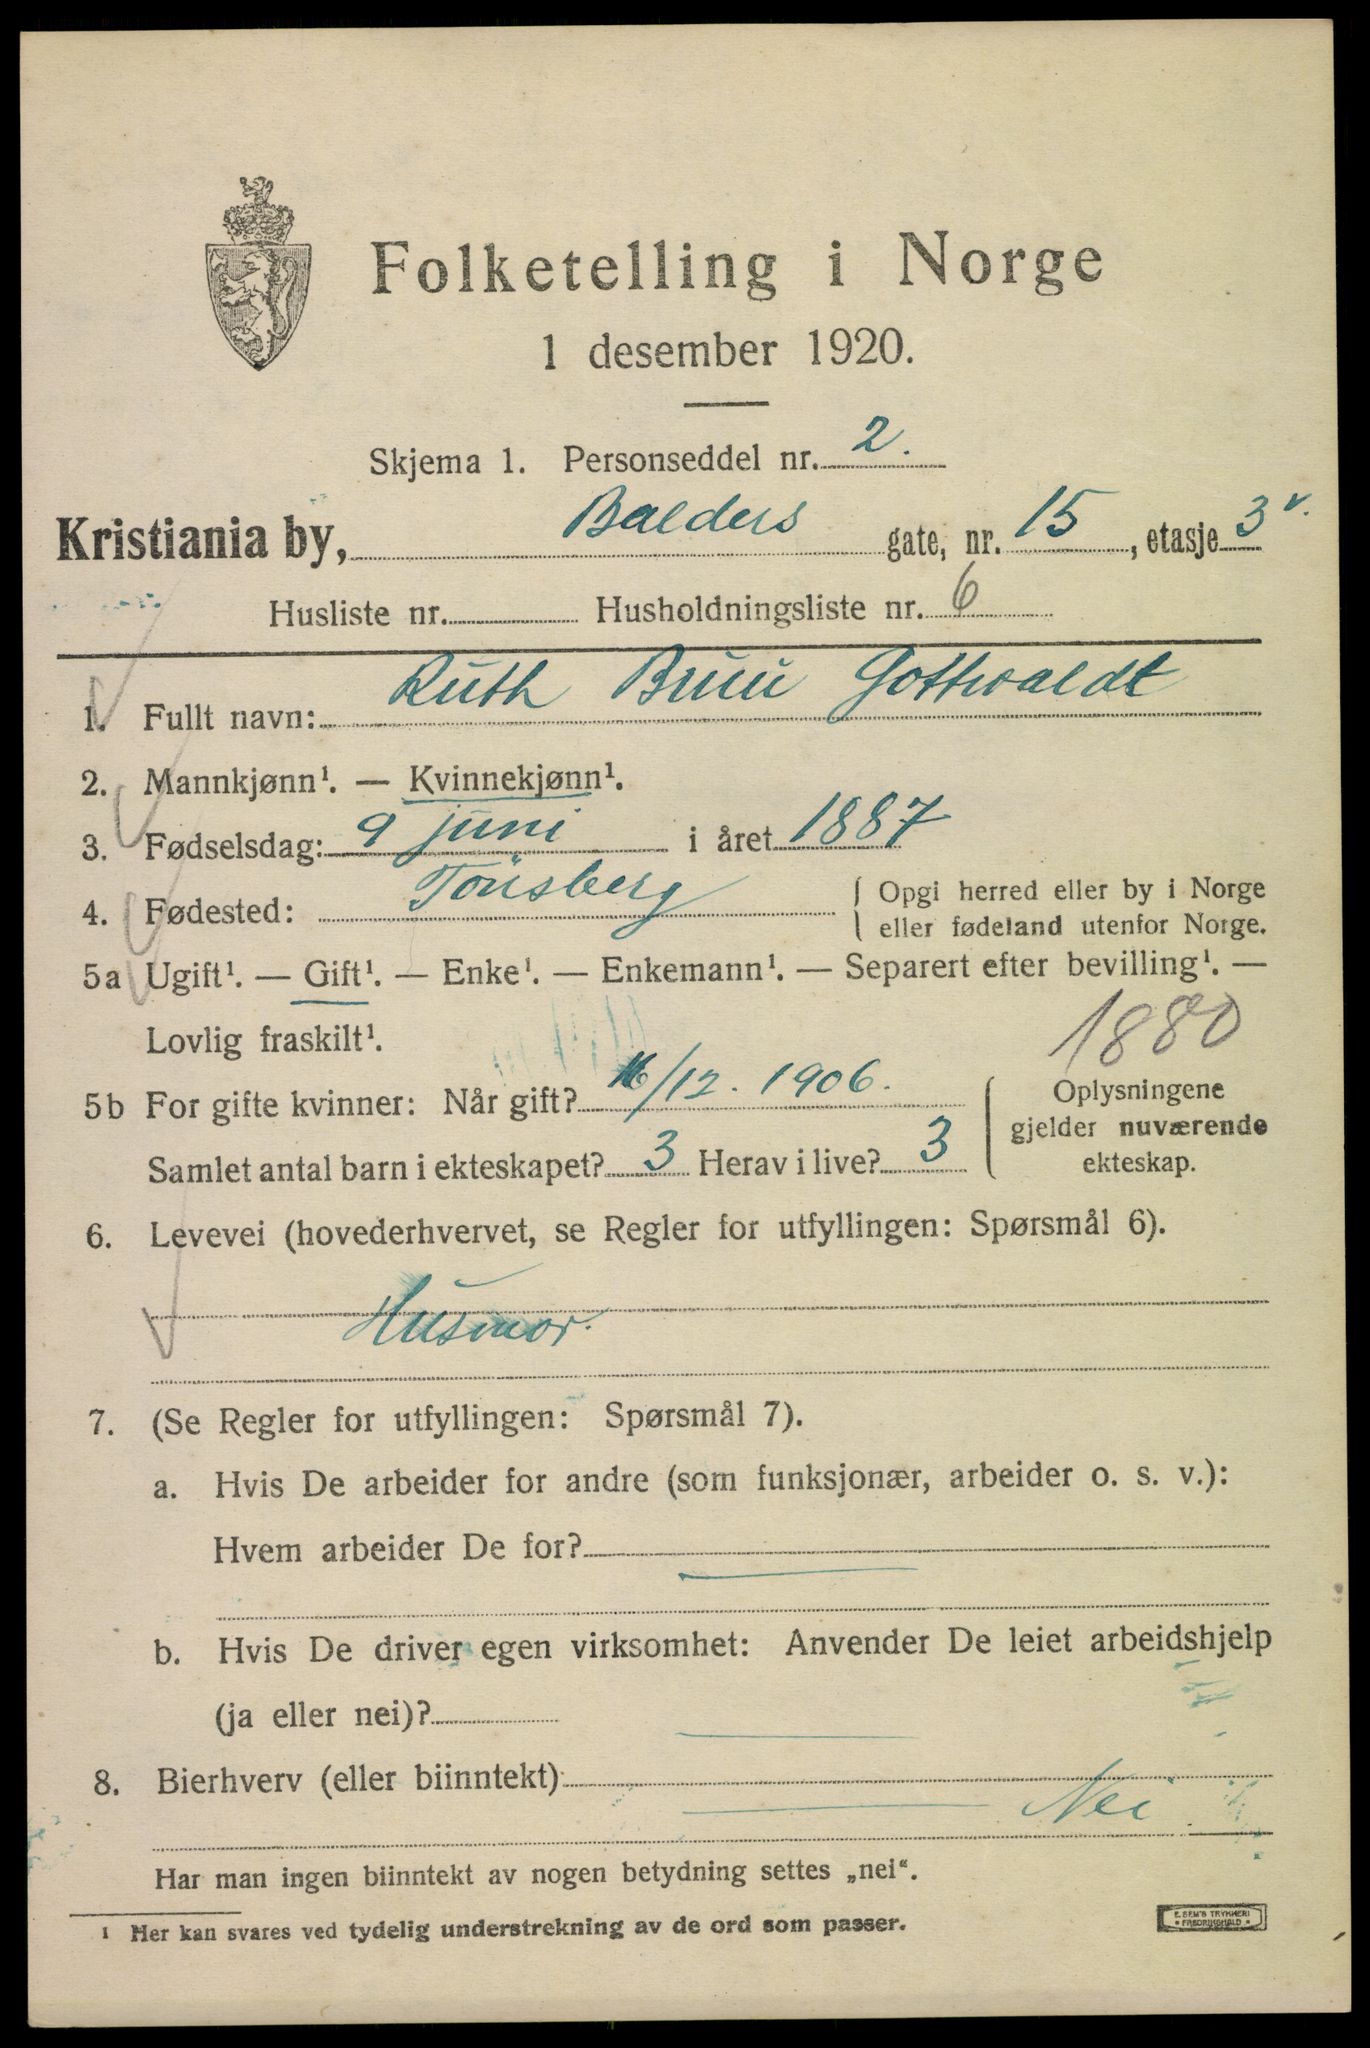 Folketelling i Norge
1 desember 1920.
Skjema 1. Personseddel nr. 2.
Kristiania by, Balders gate, nr. 15, etasje 3 v.
Husliste nr. Husholdningsliste nr. 6
1. Fullt navn: Ruth Bruu Gottwaldt
2. Mannkjønn¹. — Kvinnekjønn¹.
3. Fødselsdag: 9 juni i året 1887
4. Fødested: Tönsberg { Opgi herred eller by i Norge
eller fødeland utenfor Norge.
5a Ugift¹. — Gift¹. — Enke¹. — Enkemann¹. — Separert efter bevilling¹. —
Lovlig fraskilt¹. 1880
5b For gifte kvinner: Når gift? 16/12. 1906. { Oplysningene
gjelder nuværende
ekteskap.
Samlet antal barn i ekteskapet? 3 Herav i live? 3
6. Levevei (hovederhvervet, se Regler for utfyllingen: Spørsmål 6).
Husmor.
7. (Se Regler for utfyllingen: Spørsmål 7).
a. Hvis De arbeider for andre (som funksjonær, arbeider o. s. v.):
Hvem arbeider De for? —
b. Hvis De driver egen virksomhet: Anvender De leiet arbeidshjelp
(ja eller nei)? —
8. Bierhverv (eller biinntekt) — Nei
Har man ingen biinntekt av nogen betydning settes „nei“.
¹ Her kan svares ved tydelig understrekning av de ord som passer.
E. SEM'S TRYKKERI
• FREDRIKSHALD •